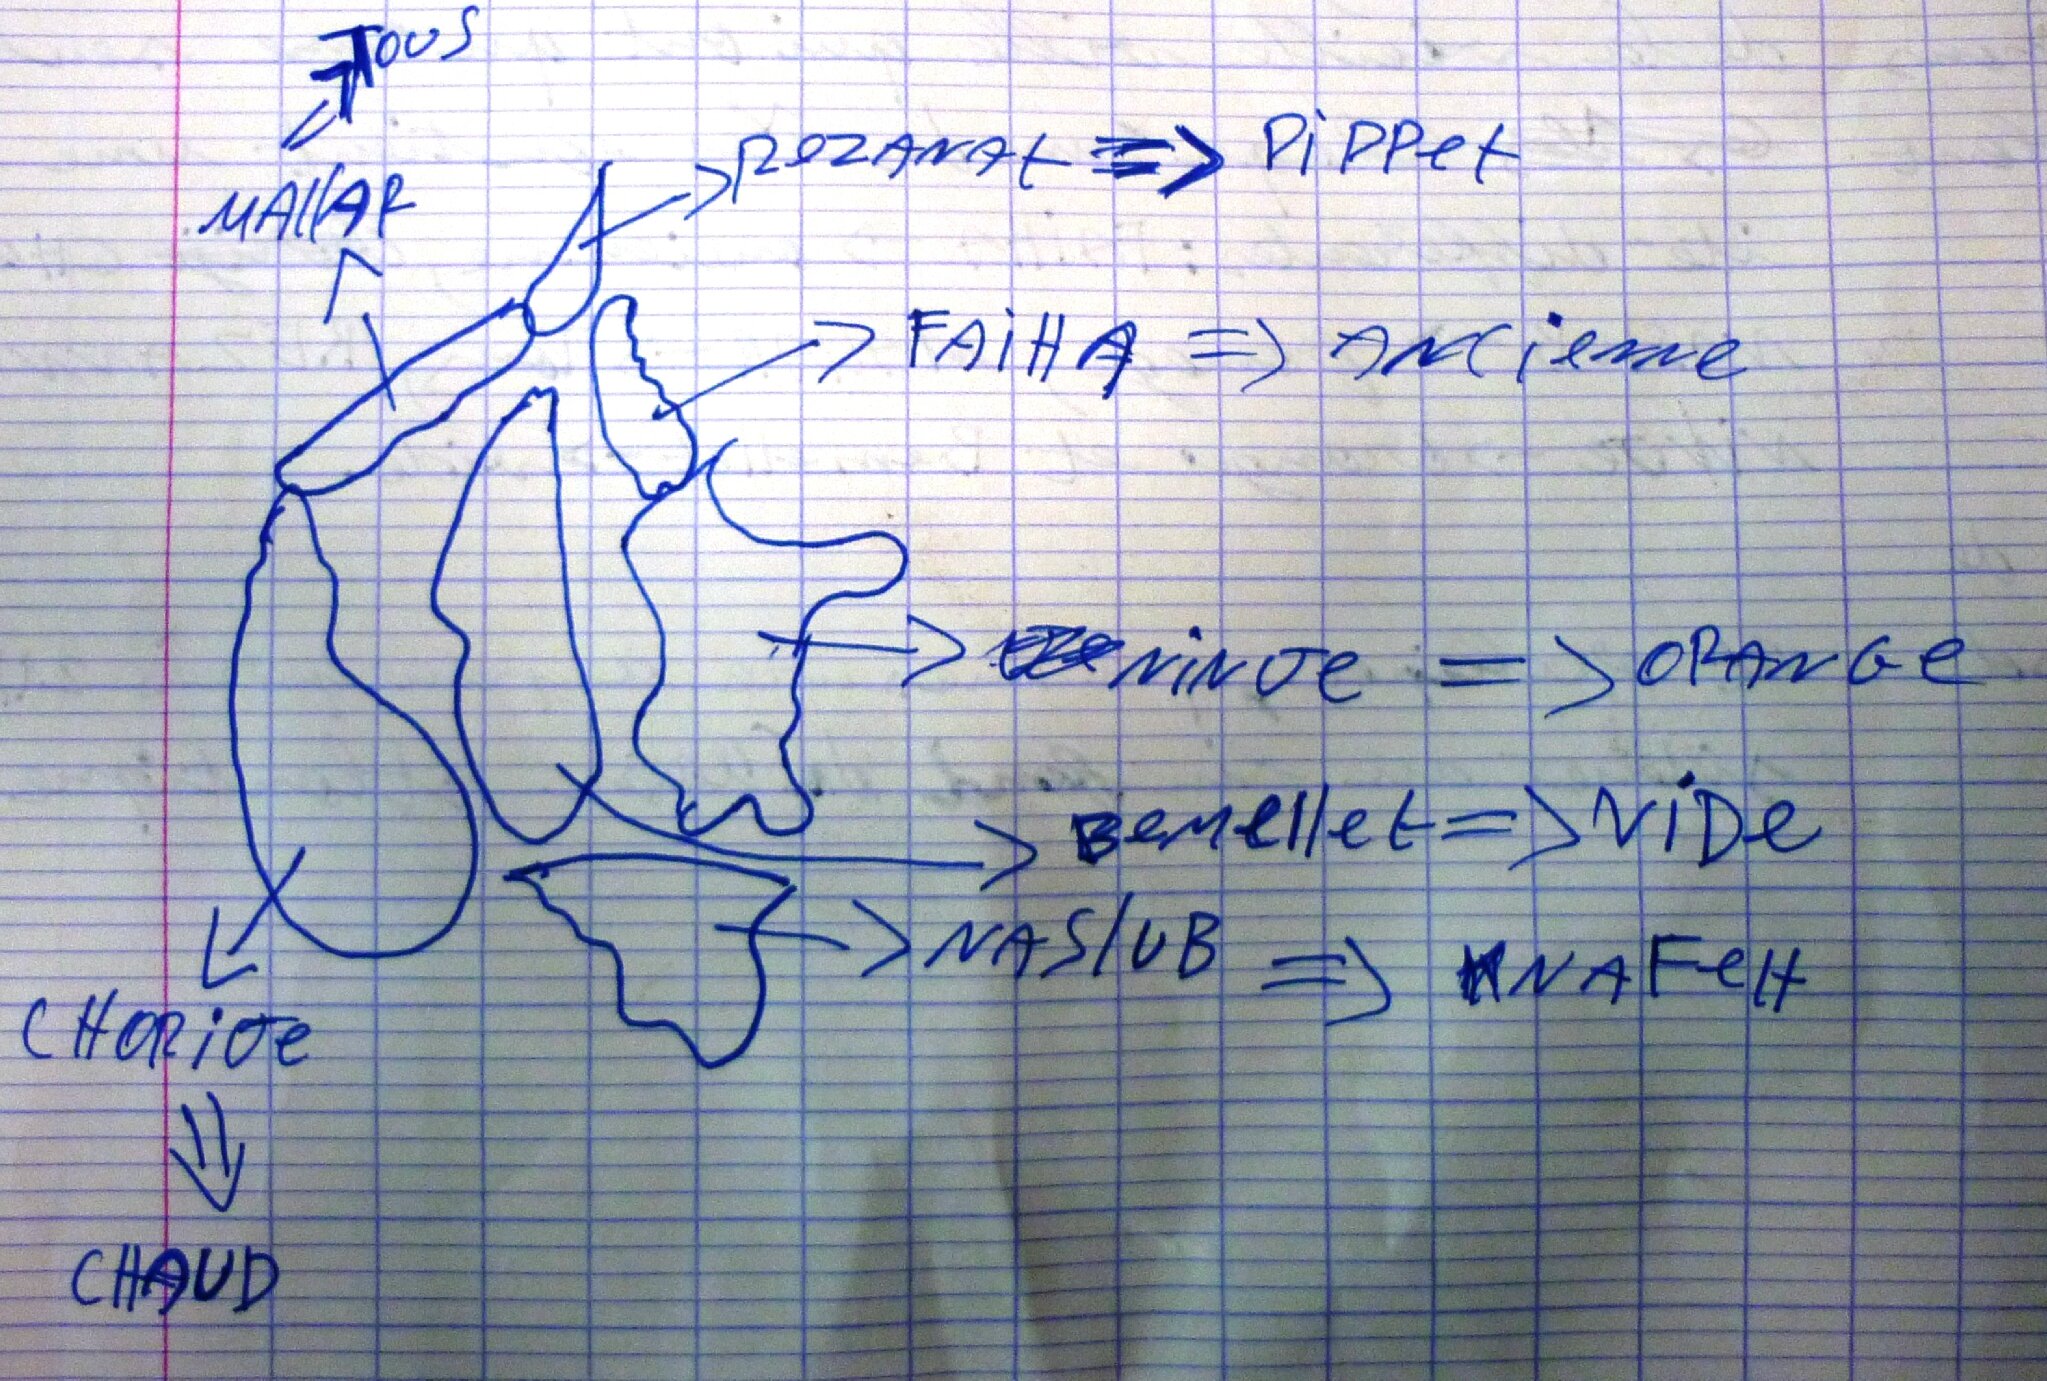 TOUS
MAllAR
ROZANAt => PiPPet
FAiHA => ANCienne
NiNUe => ORANGe
Bemellet => ViDe
NASlUB => KNAFeH
CHORiUe
CHAUD